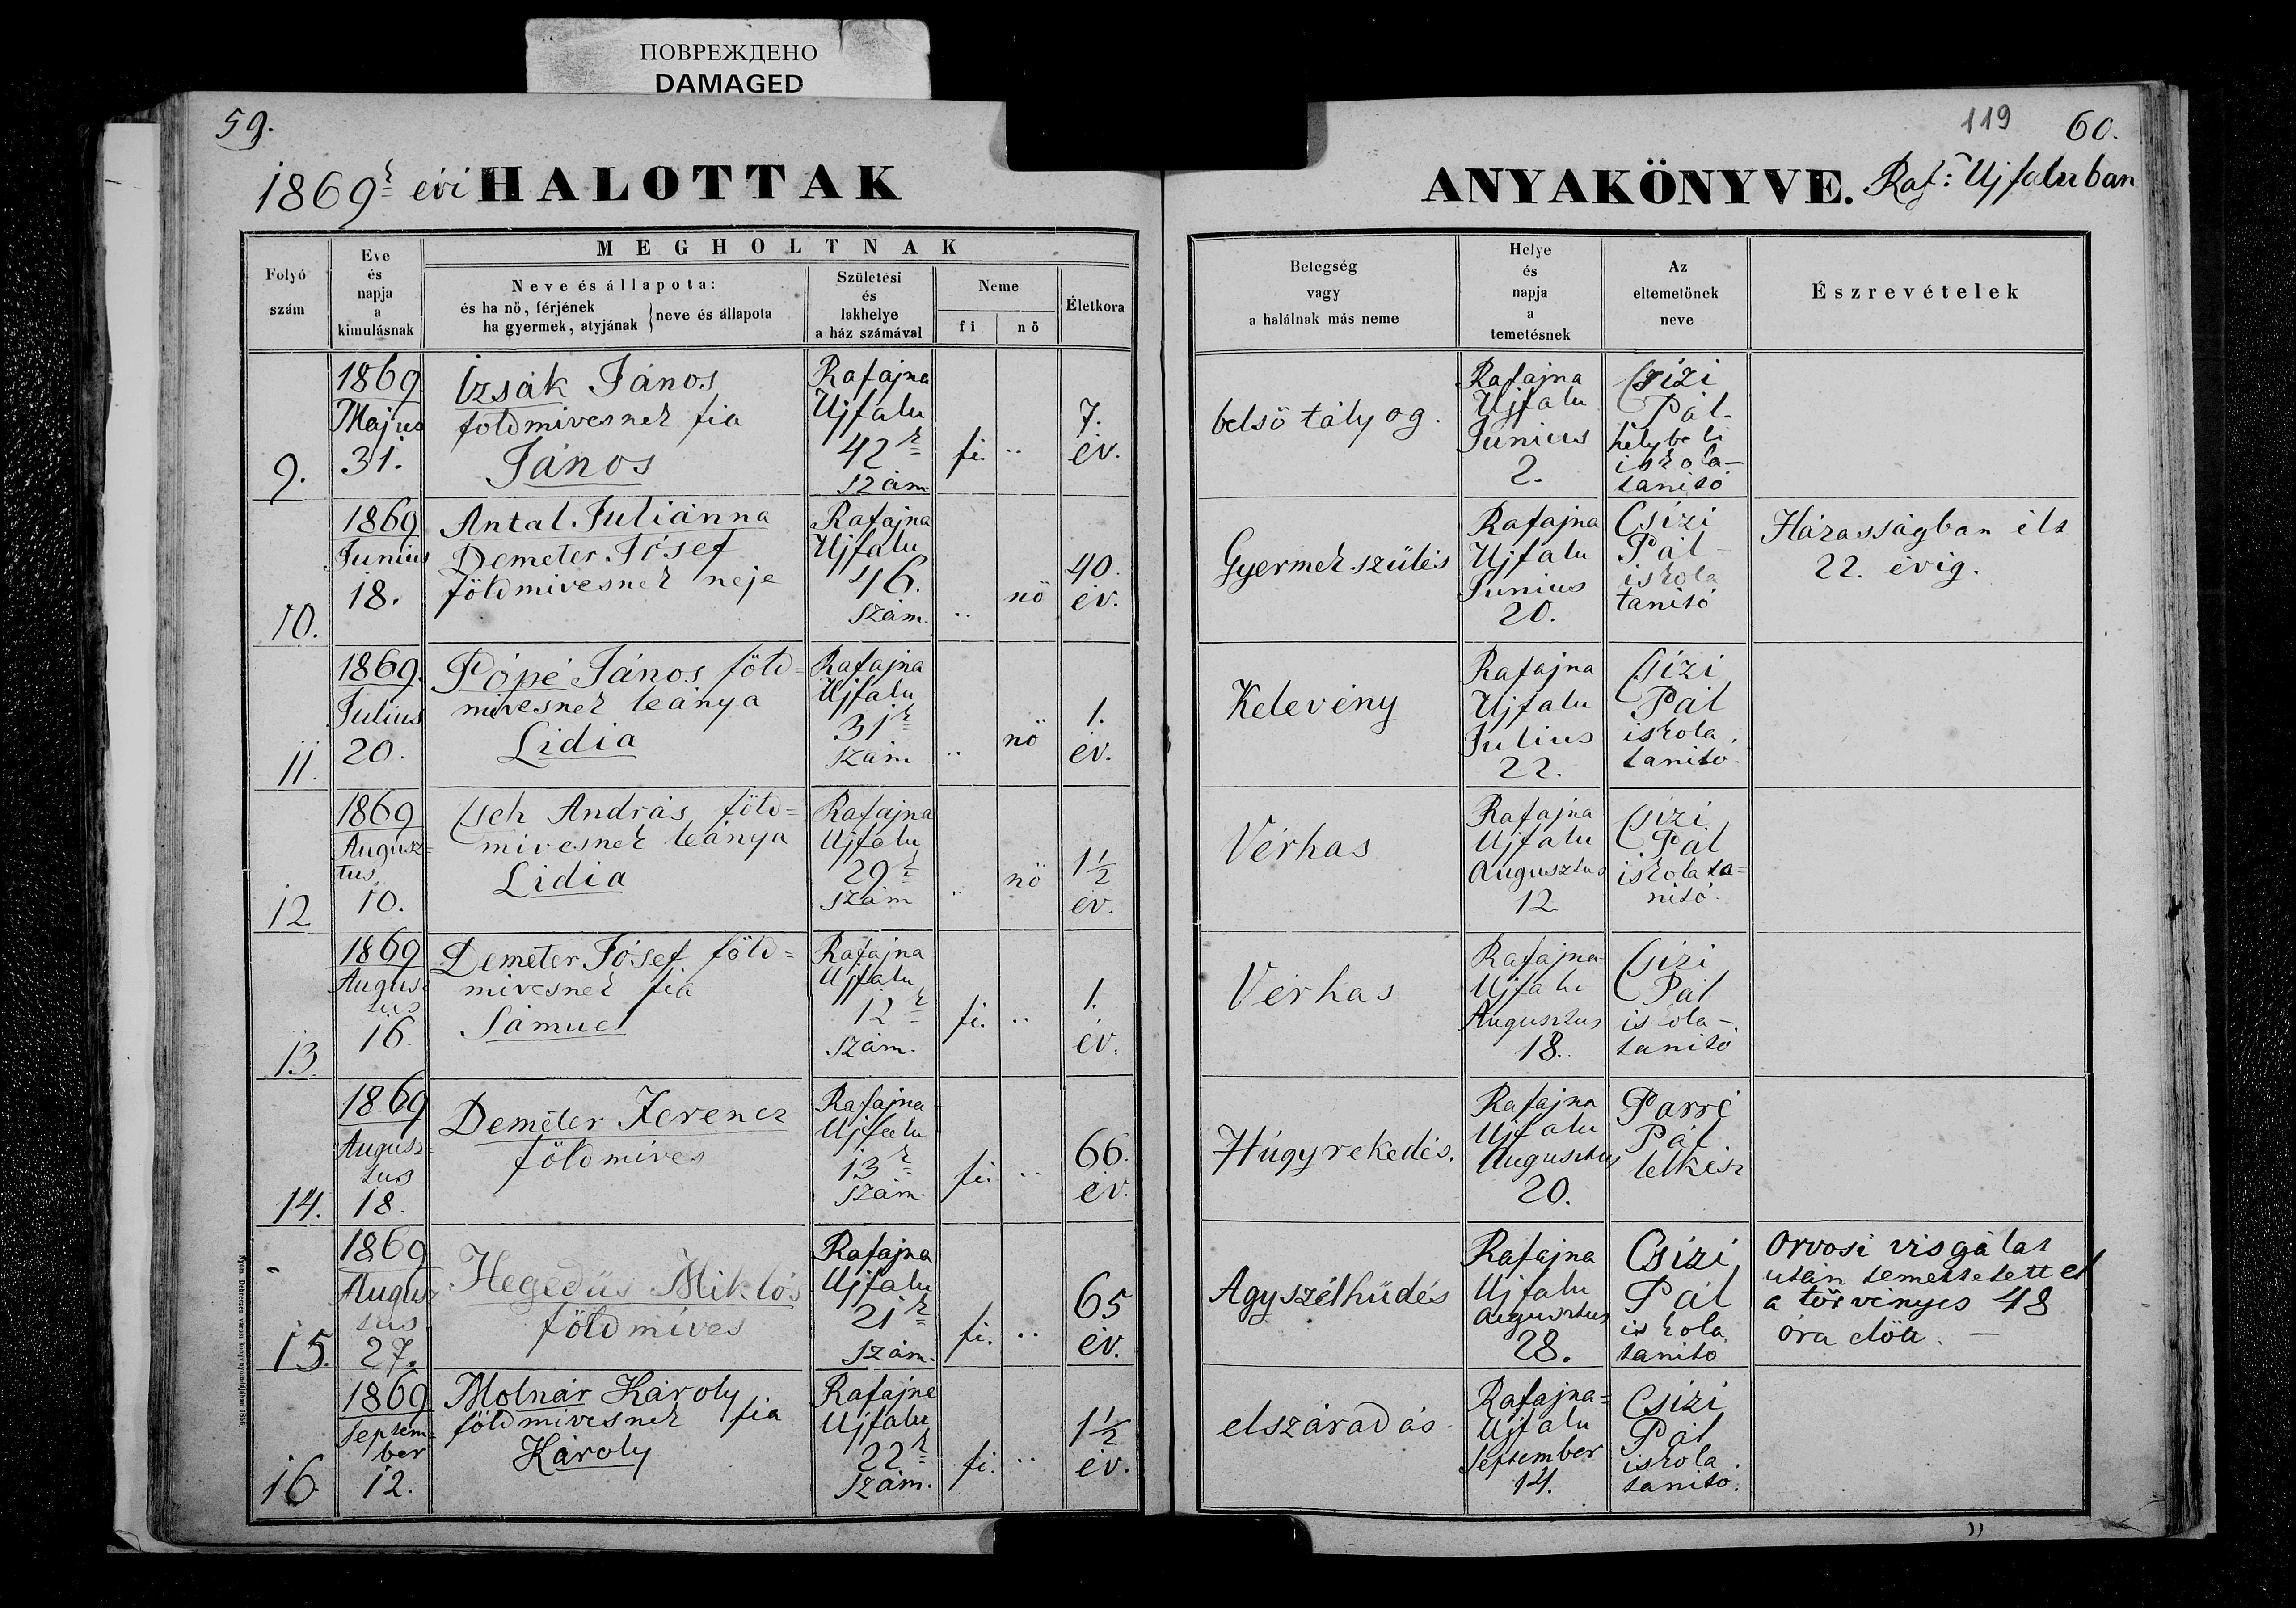 ПОВРЕЖДЕНО
DAMAGED
59.
119
60.
1869k évi HALOTTAK
ANYAKÖNYVE. Raf: Ujfaluban
Folyó szám
Eve és napja a kimulásnak
MEGHOLTNAK
Neve és állapota:
és ha nő, férjének
ha gyermek, atyjának } neve és állapota
Születési és lakhelye a ház számával
Neme
fi
nő
Életkora
Betegség vagy a halálnak más neme
Helye és napja a temetésnek
Az eltemetőnek neve
Észrevételek
9.
1869
Majus
31.
Izsák János
földmivesnek fia
János
Rafajna
Ujfalu
42k
szám
fi.
..
7.
év.
belső tályog.
Rafajna
Ujfalu
Junius
2.
Csizi
Pál
helybeli
iskola-
tanitó
10.
1869
Junius
18.
Antal Juliánna
Demeter Jósef
földmivesnek neje
Rafajna
Ujfalu
46.
szám.
..
nő
40.
év.
Gyermek szülés
Rafajna
Ujfalu
Junius
20.
Csizi
Pál
iskola
tanitó
Házasságban élt
22. évig.
11.
1869.
Julius
20.
Pópé János föld=
mivesnek leánya
Lidia
Rafajna
Ujfalu
31k
szám
..
nő
1.
év.
Kelevény
Rafajna
Ujfalu
Julius
22.
Csizi
Pál
iskola
tanitó.
12
1869
Augusz=
tus
10.
Cseh András föld=
mivesnek leánya
Lidia
Rafajna
Ujfalu
29k
szám
..
nő
1 1/2
év.
Vérhas
Rafajna
Ujfalu
Augusztus
12
Csizi
Pál
iskola ta=
nitó.
13.
1869
Augus=
tus
16.
Demeter Jósef föld=
mivesnek fia
Sámuel
Rafajna
Ujfalu
12k
szám.
fi.
..
1.
év.
Vérhas
Rafajna
Ujfalu
Augusztus
18.
Csizi
Pál
iskola-
tanitó
14.
1869
Augusz=
tus
18.
Demeter Ferencz
földmives
Rafajna
Ujfalu
13k
szám.
fi.
..
66.
év.
Húgyrekedés.
Rafajna
Ujfalu
Augusztus
20.
Parré
Pál.
lelkész
15.
1869
Augusz
tus
27.
Hegedüs Miklós
földmives
Rafajna
Ujfalu
21k
szám.
fi.
..
65
év.
Agyszélhüdés
Rafajna
Ujfalu
augusztus
28.
Csizi
Pál
iskola
tanitó
Orvosi visgálat
után temettetett el
a törvényes 48
óra előtt. —
16.
1869
Septem=
ber
12.
Molnár Károly
földmivesnek fia
Károly
Rafajna
Ujfalu
22k
szám.
fi.
..
1 1/2
év.
elszáradás
Rafajna=
Ujfalu
September
14.
Csizi
Pál
iskola
tanitó.